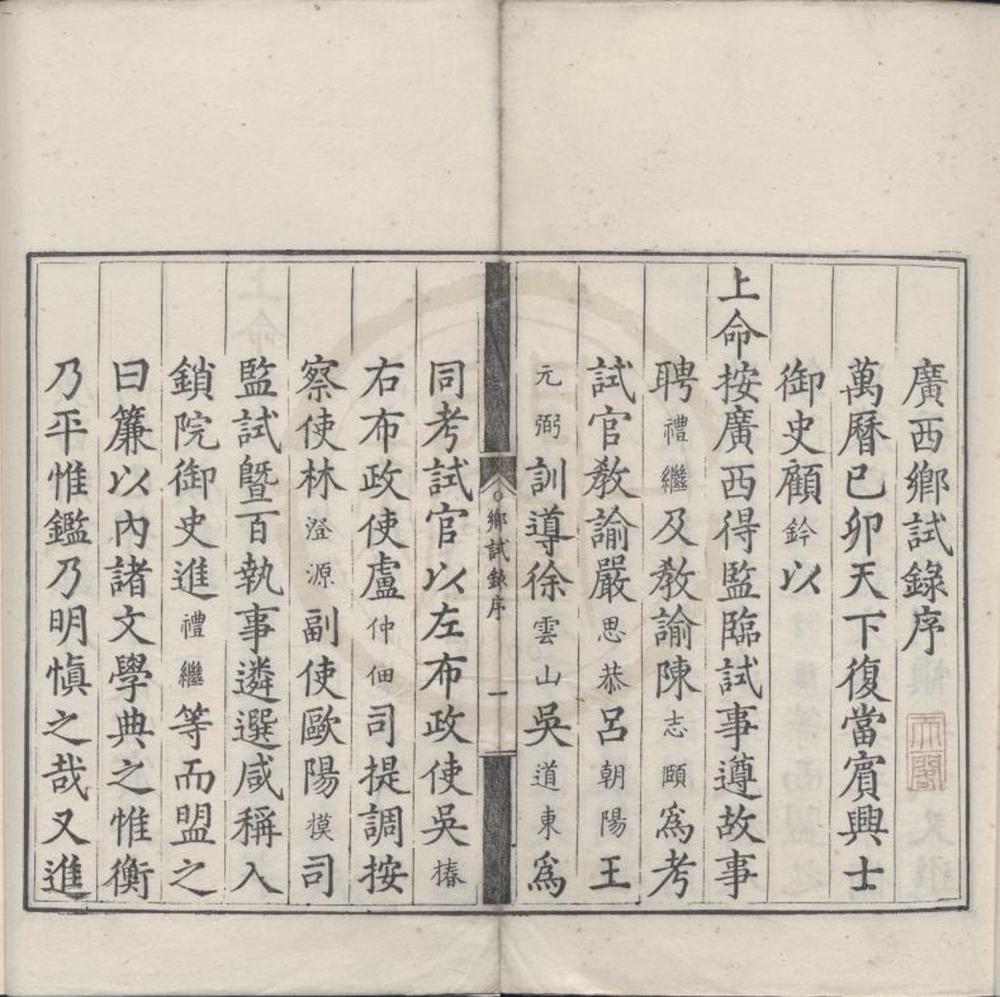 廣西鄉試錄序
萬曆已卯天下復當賓興士
御史顧鈐以
上命按廣西得監臨試事遵故事
聘禮繼及教諭陳志頤爲考
試官教諭嚴思恭呂朝陽王
元弼訓導徐雲山吳道東爲
鄉試錄序 一
同考試官以左布政使吳椿
右布政使盧仲佃司提調按
察使林澄源副使歐陽模司
監試暨百執事遴選咸稱入
鎖院御史進禮繼等而盟之
曰簾以內諸文學典之惟衡
乃平惟鑑乃明愼之哉又進